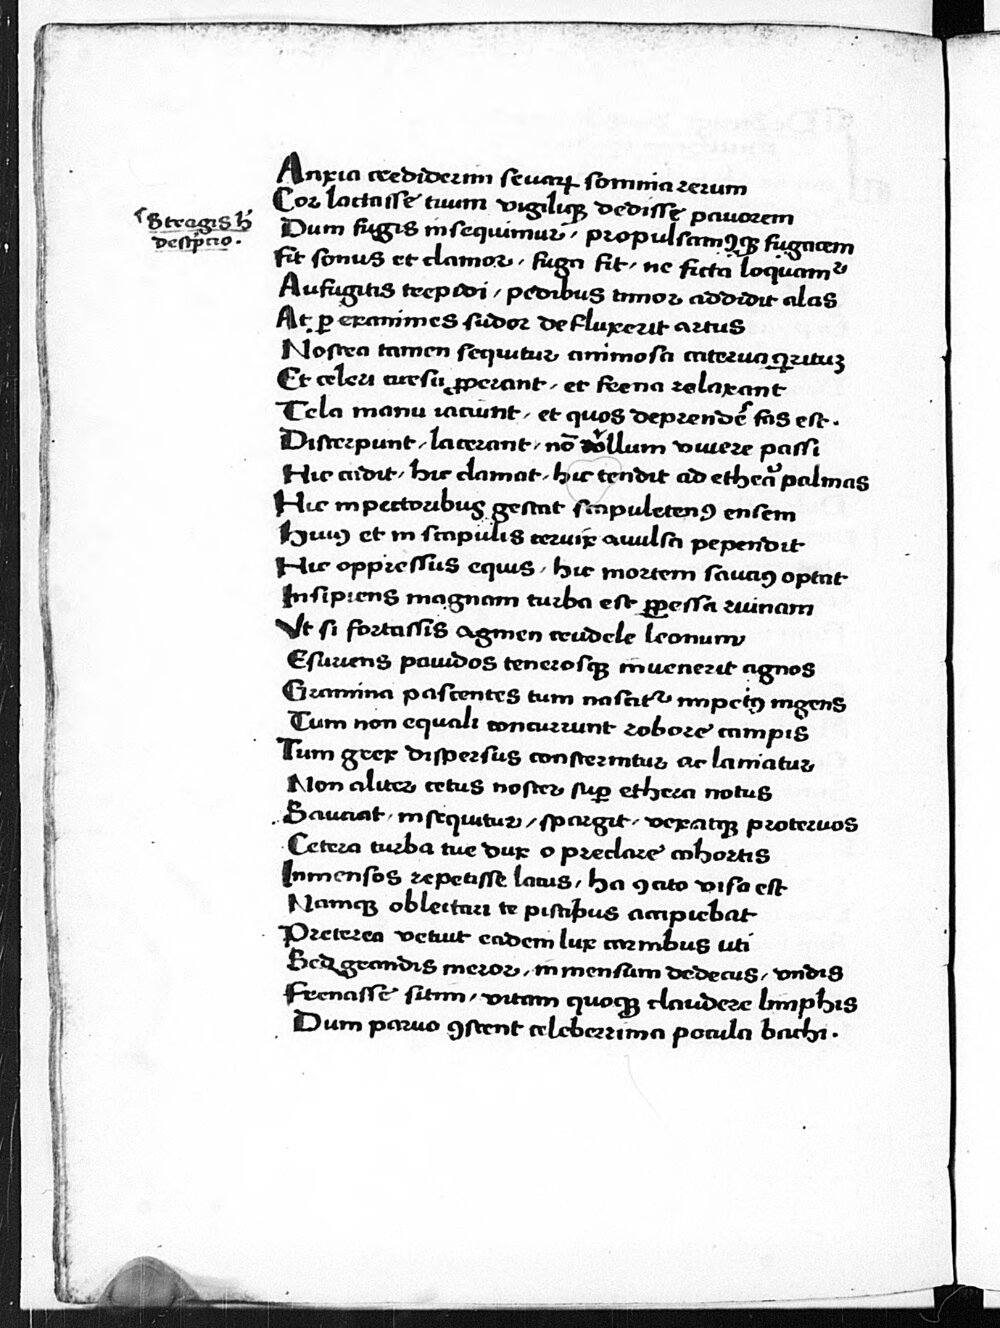 Anxia crediderim seuarꝝ somnia rerum
Cor lactasse tuum vigiliqꝫ dedisse pauorem
Stragis h̄
descp̄cio.
Dum fugis insequimur / propulsamꝰqꝫ fugacem
Fit sonus et clamor / fuga fit / ne ficta loquamr
Aufugitis trepidi / pedibus timor addidit alas
At ꝑ exanimes sudor defluxerit artus
Nostra tamen sequitur animosa caterua
Et celeri cursu ꝓperant / et frena relaxant
Tela manu iaciunt / et quos deprendē fas est.
Discerpunt / lacerant / nō vllum viuere passi
Hic cadit / hic clamat / hic tendit ad ethera palmas
Hic in pectoribus gestat scapuletenꝰ ensem
Huiꝰ et in scapulis ceruix auulsa pependit
Hic oppressus equis / hic mortem sauciꝰ optat
Insipiens magnam turba est ꝑpessa ruinam
Vt si fortassis agmen crudele leonum
Esuriens pauidos tenerosqꝫ inuenerit agnos
Gramina pascentes tum nascitr impetꝰ ingens
Tum non equali concurrunt robore campis
Tum grex dispersus consternitur ac laniatur
Non aliter cetus noster suꝑ ethera notus
Sauciat / insequitur / spargit / vexatqꝫ proteruos
Cetera turba tue dux o preclare cohortis
Inmensos repetisse lacus / ha ꝯcito visa est
Namqꝫ oblectari te piscibus accipiebat
Preterea vetuit eadem lux carnibus uti
Sed grandis meror / inmensum dedecus / vndis
Frenasse sitim / vitam quoqꝫ claudere limphis
Dum paruo ꝯstent celeberrima pocula bachi.